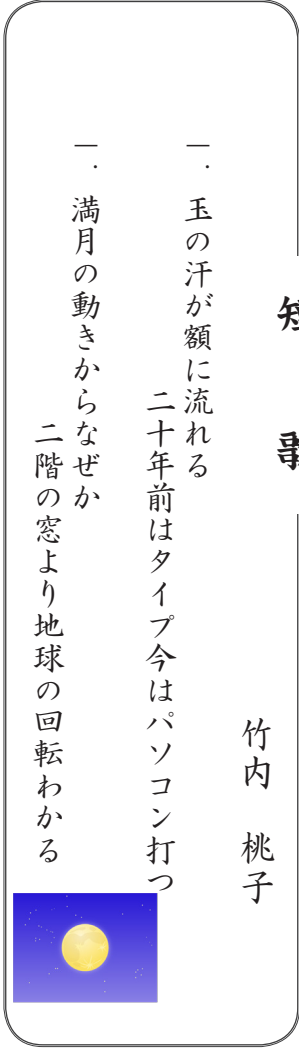 竹内 桃子
一. 玉の汗が額に流れる
二十年前はタイプ今はパソコン打つ
一. 満月の動きからなぜか
二階の窓より地球の回転わかる